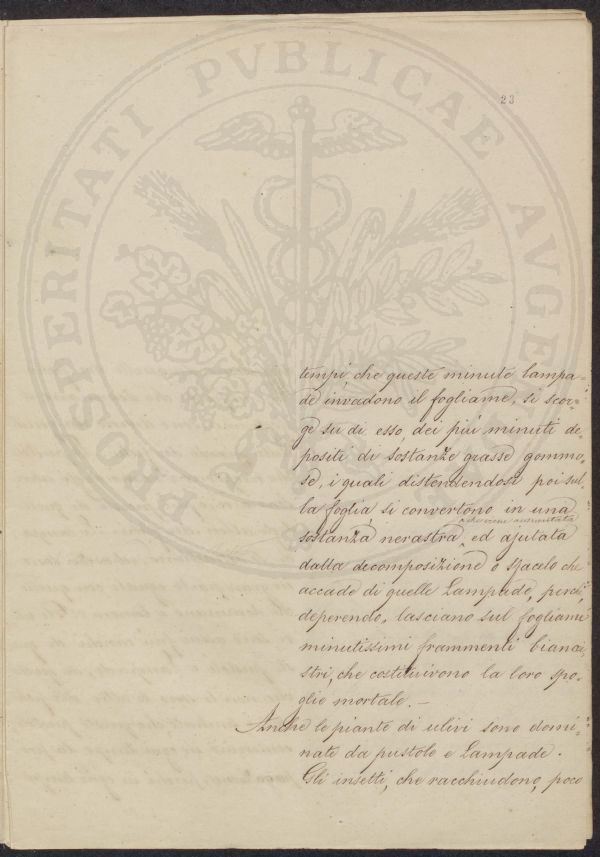 PROSPERITATI PVBLICAE AVGE
23
tempi, che queste minute lampa-
de invadono il fogliame, si scor-
ge su di esso, dei più minuti de-
positi di sostanze grasse gommo-
se, i quali distendendosi poi sul-
la foglia, si convertono in una
che viene aumentata
sostanza nerastra, ed ajutata
dalla decomposizione o sfacelo che
accade di quelle Lampade, perchè
deperendo, lasciano sul fogliame
minutissimi frammenti bianca-
stri, che costituivono la loro spo-
glie mortale. —
Anche le piante di ulivi sono domi-
nate da pustole e Lampade.
Gli insetti, che racchiudono, poco